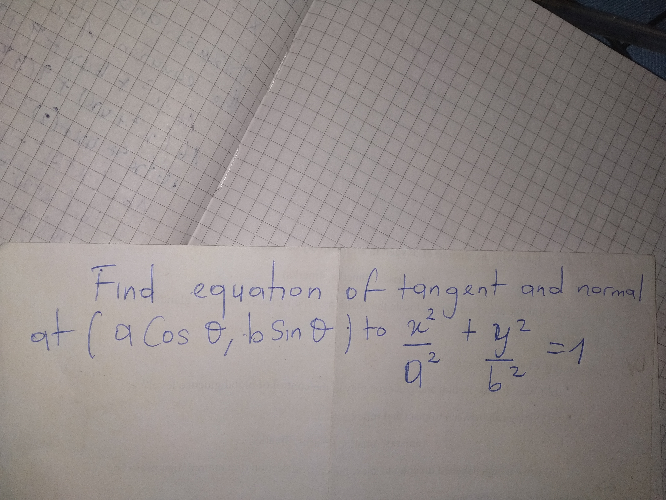 Find equation of tangent and normal
at (a Cos θ, b Sin θ) to x²/a² + y²/b² = 1